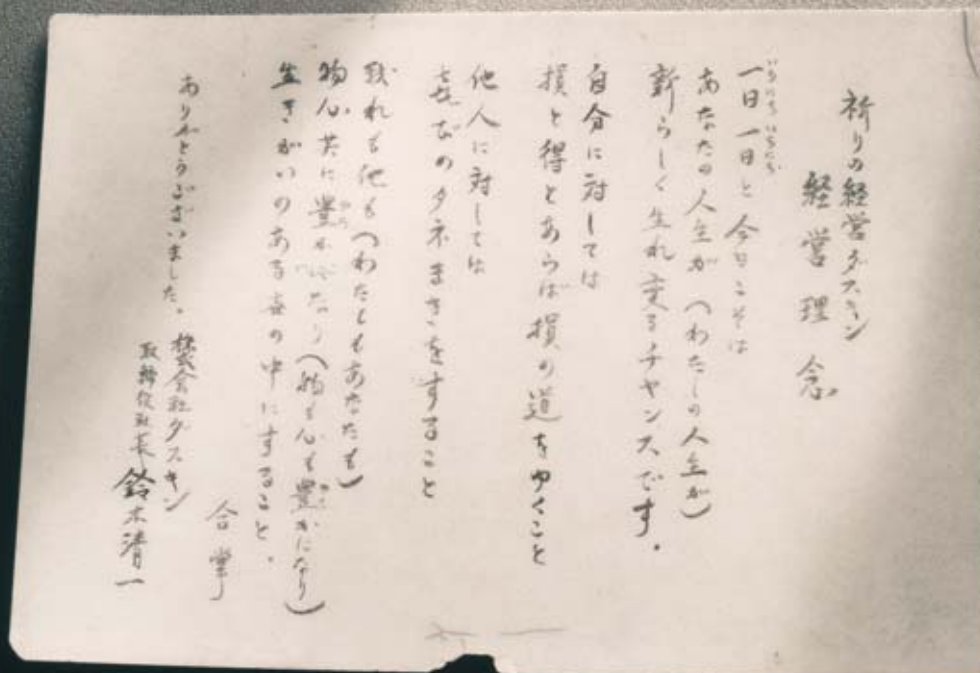 祈りの経営ダスキン
経営理念
一日一日と今日こそは
いちにち いちにち
あなたの人生が(わたしの人生が)
新らしく生れ変るチャンスです。
自分に対しては
損と得とあらば損の道をゆくこと
他人に対しては
喜びのタネまきをすること
我れも他も(わたしもあなたも)
物心共に豊かになり(物も心も豊かになり)
生きがいのある世の中にすること。
合掌
ありがとうございました。
株式会社ダスキン
取締役社長 鈴木清一